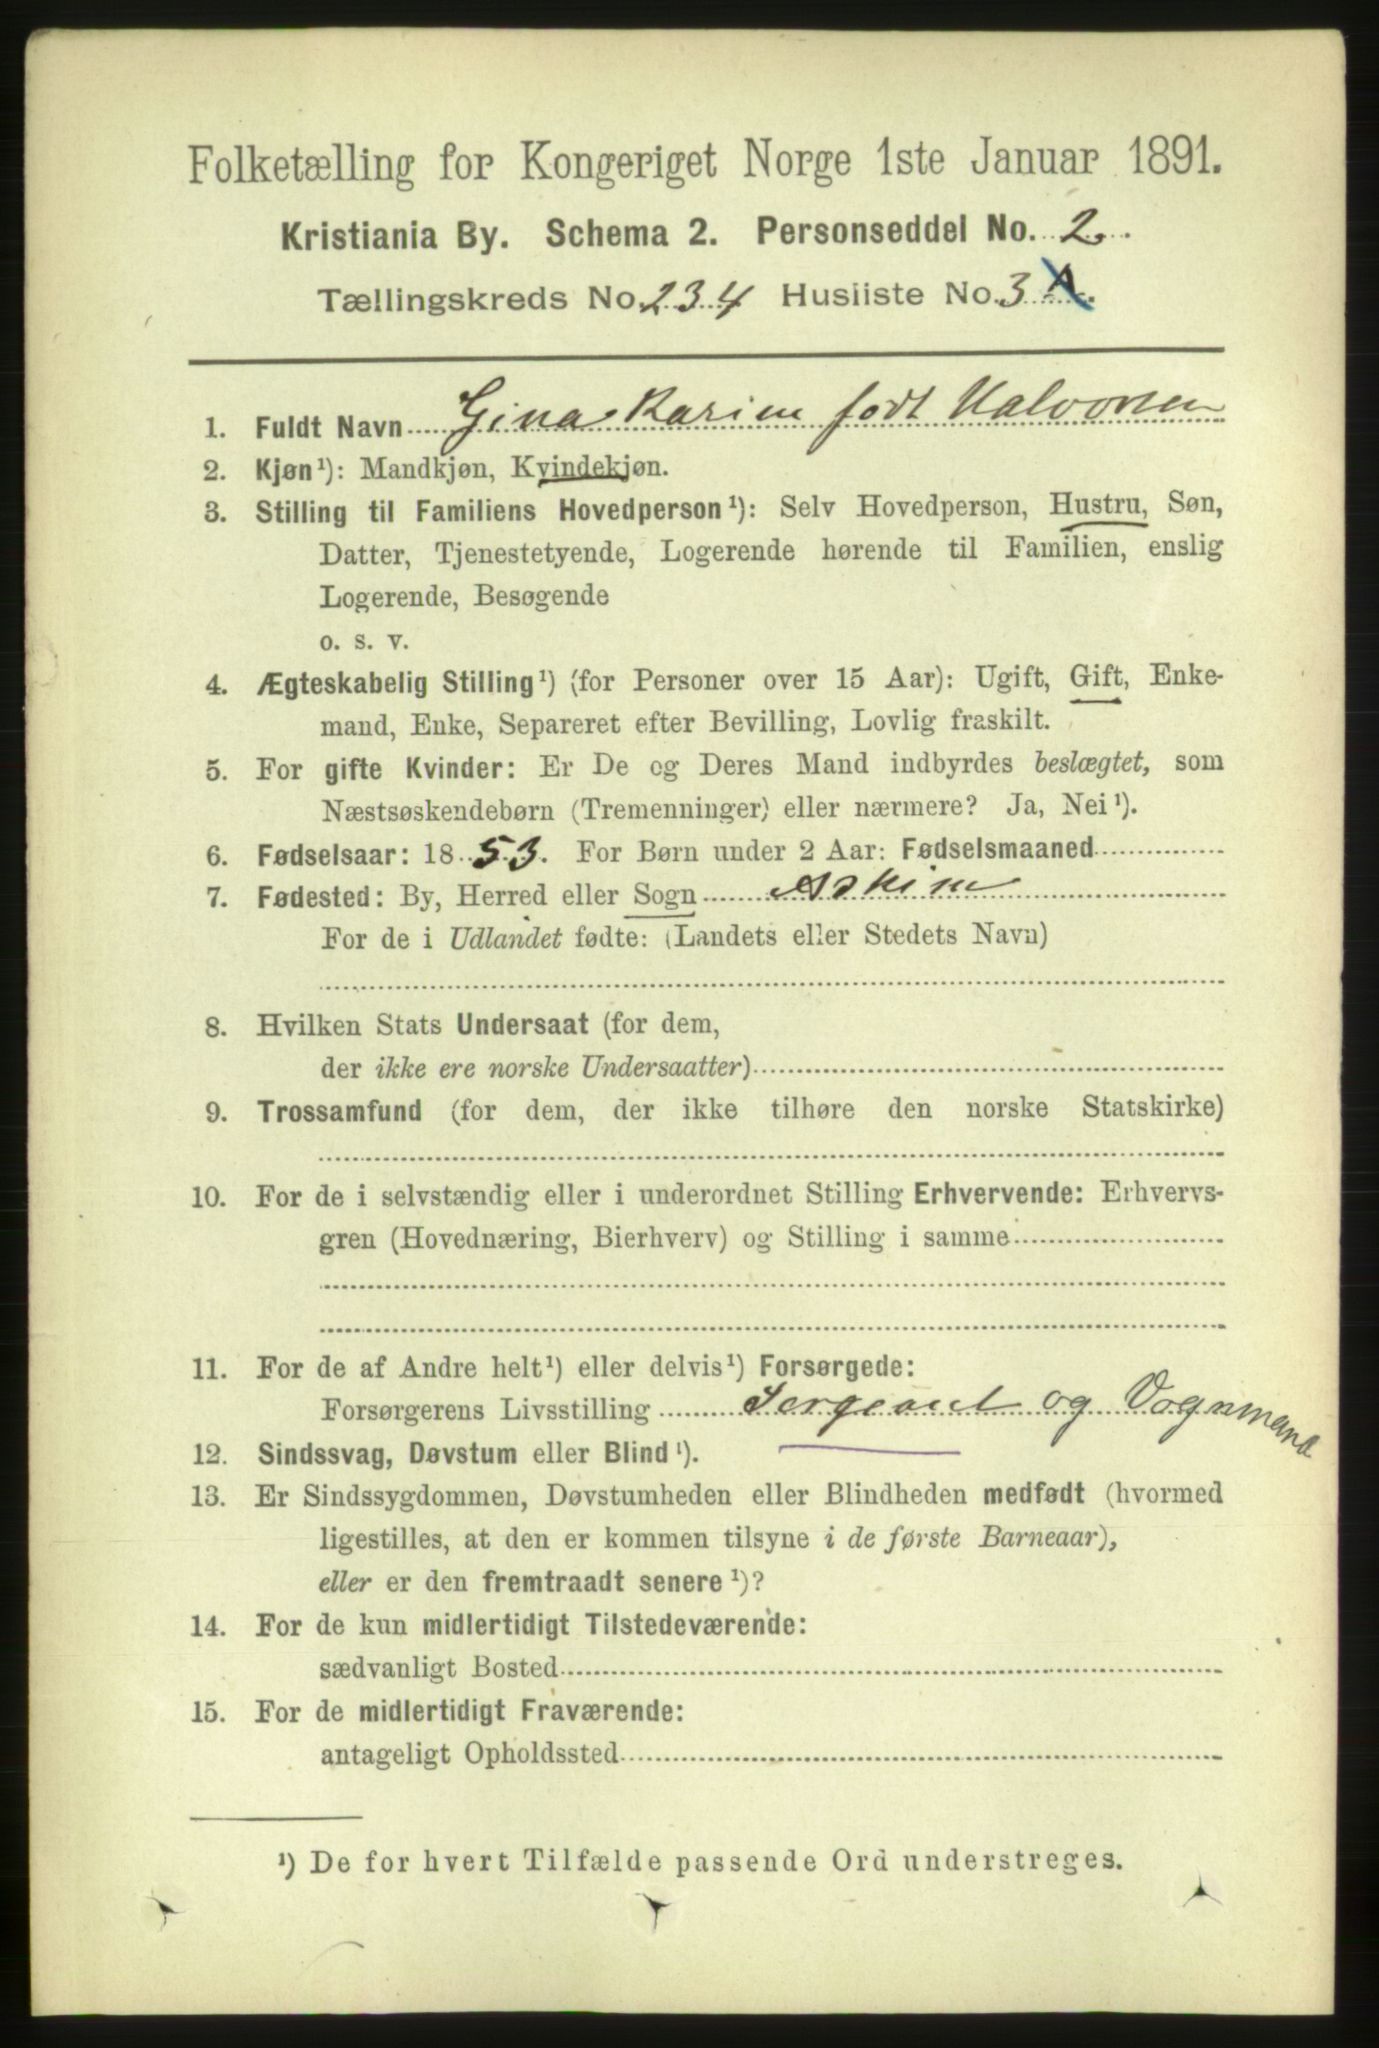 Folketælling for Kongeriget Norge 1ste Januar 1891.
Kristiania By. Schema 2. Personseddel No. 2.
Tællingskreds No. 234 Husliste No. 3 A.
1. Fuldt Navn Gina Karine født Halvorsen
2. Kjøn¹): Mandkjøn, Kvindekjøn.
3. Stilling til Familiens Hovedperson¹): Selv Hovedperson, Hustru, Søn,
Datter, Tjenestetyende, Logerende hørende til Familien, enslig
Logerende, Besøgende
o. s. v.
4. Ægteskabelig Stilling¹) (for Personer over 15 Aar): Ugift, Gift, Enke-
mand, Enke, Separeret efter Bevilling, Lovlig fraskilt.
5. For gifte Kvinder: Er De og Deres Mand indbyrdes beslægtet, som
Næstsøskendebørn (Tremenninger) eller nærmere? Ja, Nei¹).
6. Fødselsaar: 1853. For Børn under 2 Aar: Fødselsmaaned
7. Fødested: By, Herred eller Sogn Askim
For de i Udlandet fødte: (Landets eller Stedets Navn)
8. Hvilken Stats Undersaat (for dem,
der ikke ere norske Undersaatter)
9. Trossamfund (for dem, der ikke tilhøre den norske Statskirke)
10. For de i selvstændig eller i underordnet Stilling Erhvervende: Erhvervs-
gren (Hovednæring, Bierhverv) og Stilling i samme
11. For de af Andre helt¹) eller delvis¹) Forsørgede:
Forsørgerens Livsstilling Sergeant og Vognmand
12. Sindssvag, Døvstum eller Blind¹).
13. Er Sindssygdommen, Døvstumheden eller Blindheden medfødt (hvormed
ligestilles, at den er kommen tilsyne i de første Barneaar),
eller er den fremtraadt senere¹)?
14. For de kun midlertidigt Tilstedeværende:
sædvanligt Bosted
15. For de midlertidigt Fraværende:
antageligt Opholdssted
¹) De for hvert Tilfælde passende Ord understreges.